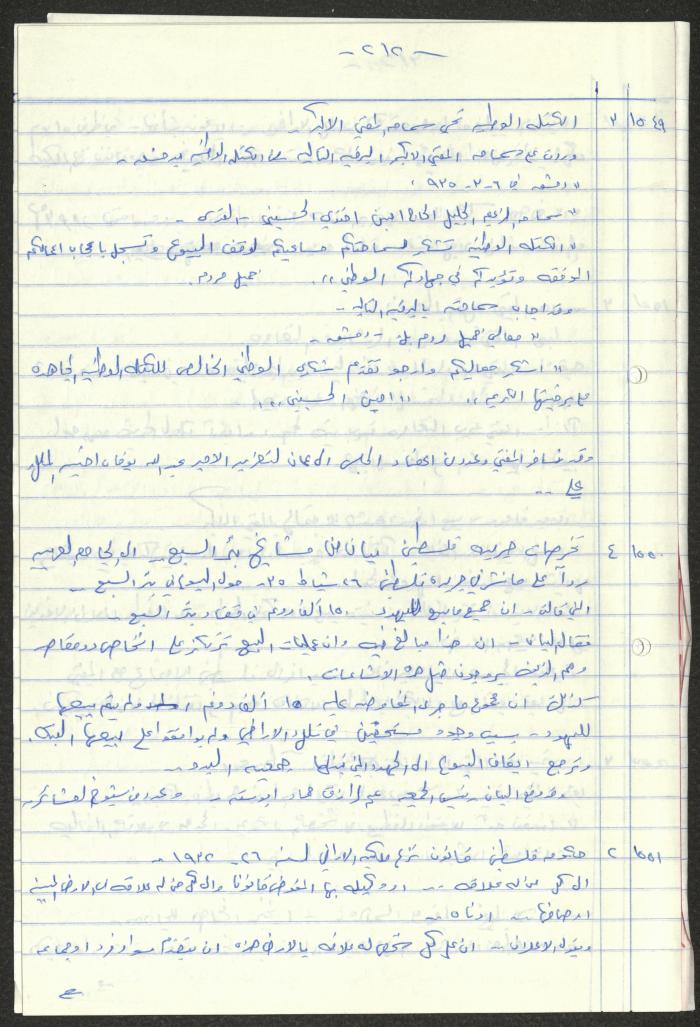 -٢١٢-
١٥٤٩ ٢ الكتلة الوطنية تحي سماحة المفتي الاكبر
وردت على سماحة المفتي الاكبر البرقية التالية من الكتلة الوطنية بدمشق -
" دمشق في ٦-٢-٩٣٥ ،
" سماحة الزعيم الجليل الحاج امين افندي الحسيني - القدس -
" الكتلة الوطنية تشكر لسماحتكم مساعيكم لوقف البيوع وتسجل باعجاب اعمالكم
الموفقة وتؤيدكم في جهادكم الوطني ،، . جميل مردم .
وقد اجاب سماحته بالبرقية التالية -
" معالي جميل مردم بك - دمشق -
" اشكر معاليكم وارجو تقديم شكري الوطني الخالص للكتلة الوطنية المجاهدة
على برقيتها الكريمة ،، " امين الحسيني ،،
وقد سافر المفتي وعدد من اعضاء المجلس الى عمان لتعزية الامير عبد الله بوفاة اخيه الملك
علي --
١٥٥٠ ٤ تخرصات جريدة فلسطين بيان من مشايخ بئر السبع - الجامعة العربية
رداً على ما نشر في جريدة فلسطين ٢٦ شباط ٣٥ - حول البيوع في بئر السبع -
التي قالت - ان جميع ما بيع لليهود - ١٥٠ الف دونم في قضاء بئر السبع -
فقال البيان - ان هذا مبالغ فيه وان عمليات البيع تتركز على اشخاص
وهم الذين يروجون مثل هذه الاشاعات .
كذلك ان مجموع ما جرى التفاوض عليه ١٥ الف دونم ولم يتم بيعها
لليهود - بسبب وجود مستحقين في تلك الاراضي ولم يوافقوا على بيعها البتة.
وترجع ايقاف البيوع الى الجهود التي تبذلها جمعية البدو -
وقد وقع البيان رئيس الجمعية عبد الرازق حماد ابو ستة - وعدد من شيوخ العشائر -
١٥٥١ ٢ حكومة فلسطين قانون نزع ملكية الاراضي لسنة ٢٦ - ١٩٣٢ -
الى كل من له علاقة - او وكيله المفوض قانونا والى كل من له علاقة في الارض المبينة
اوصافها - ادناه -
ويقول الاعلان - ان على كل شخص له علاقة بالارض هذه ان يتقدم سواء فرد او جماعة